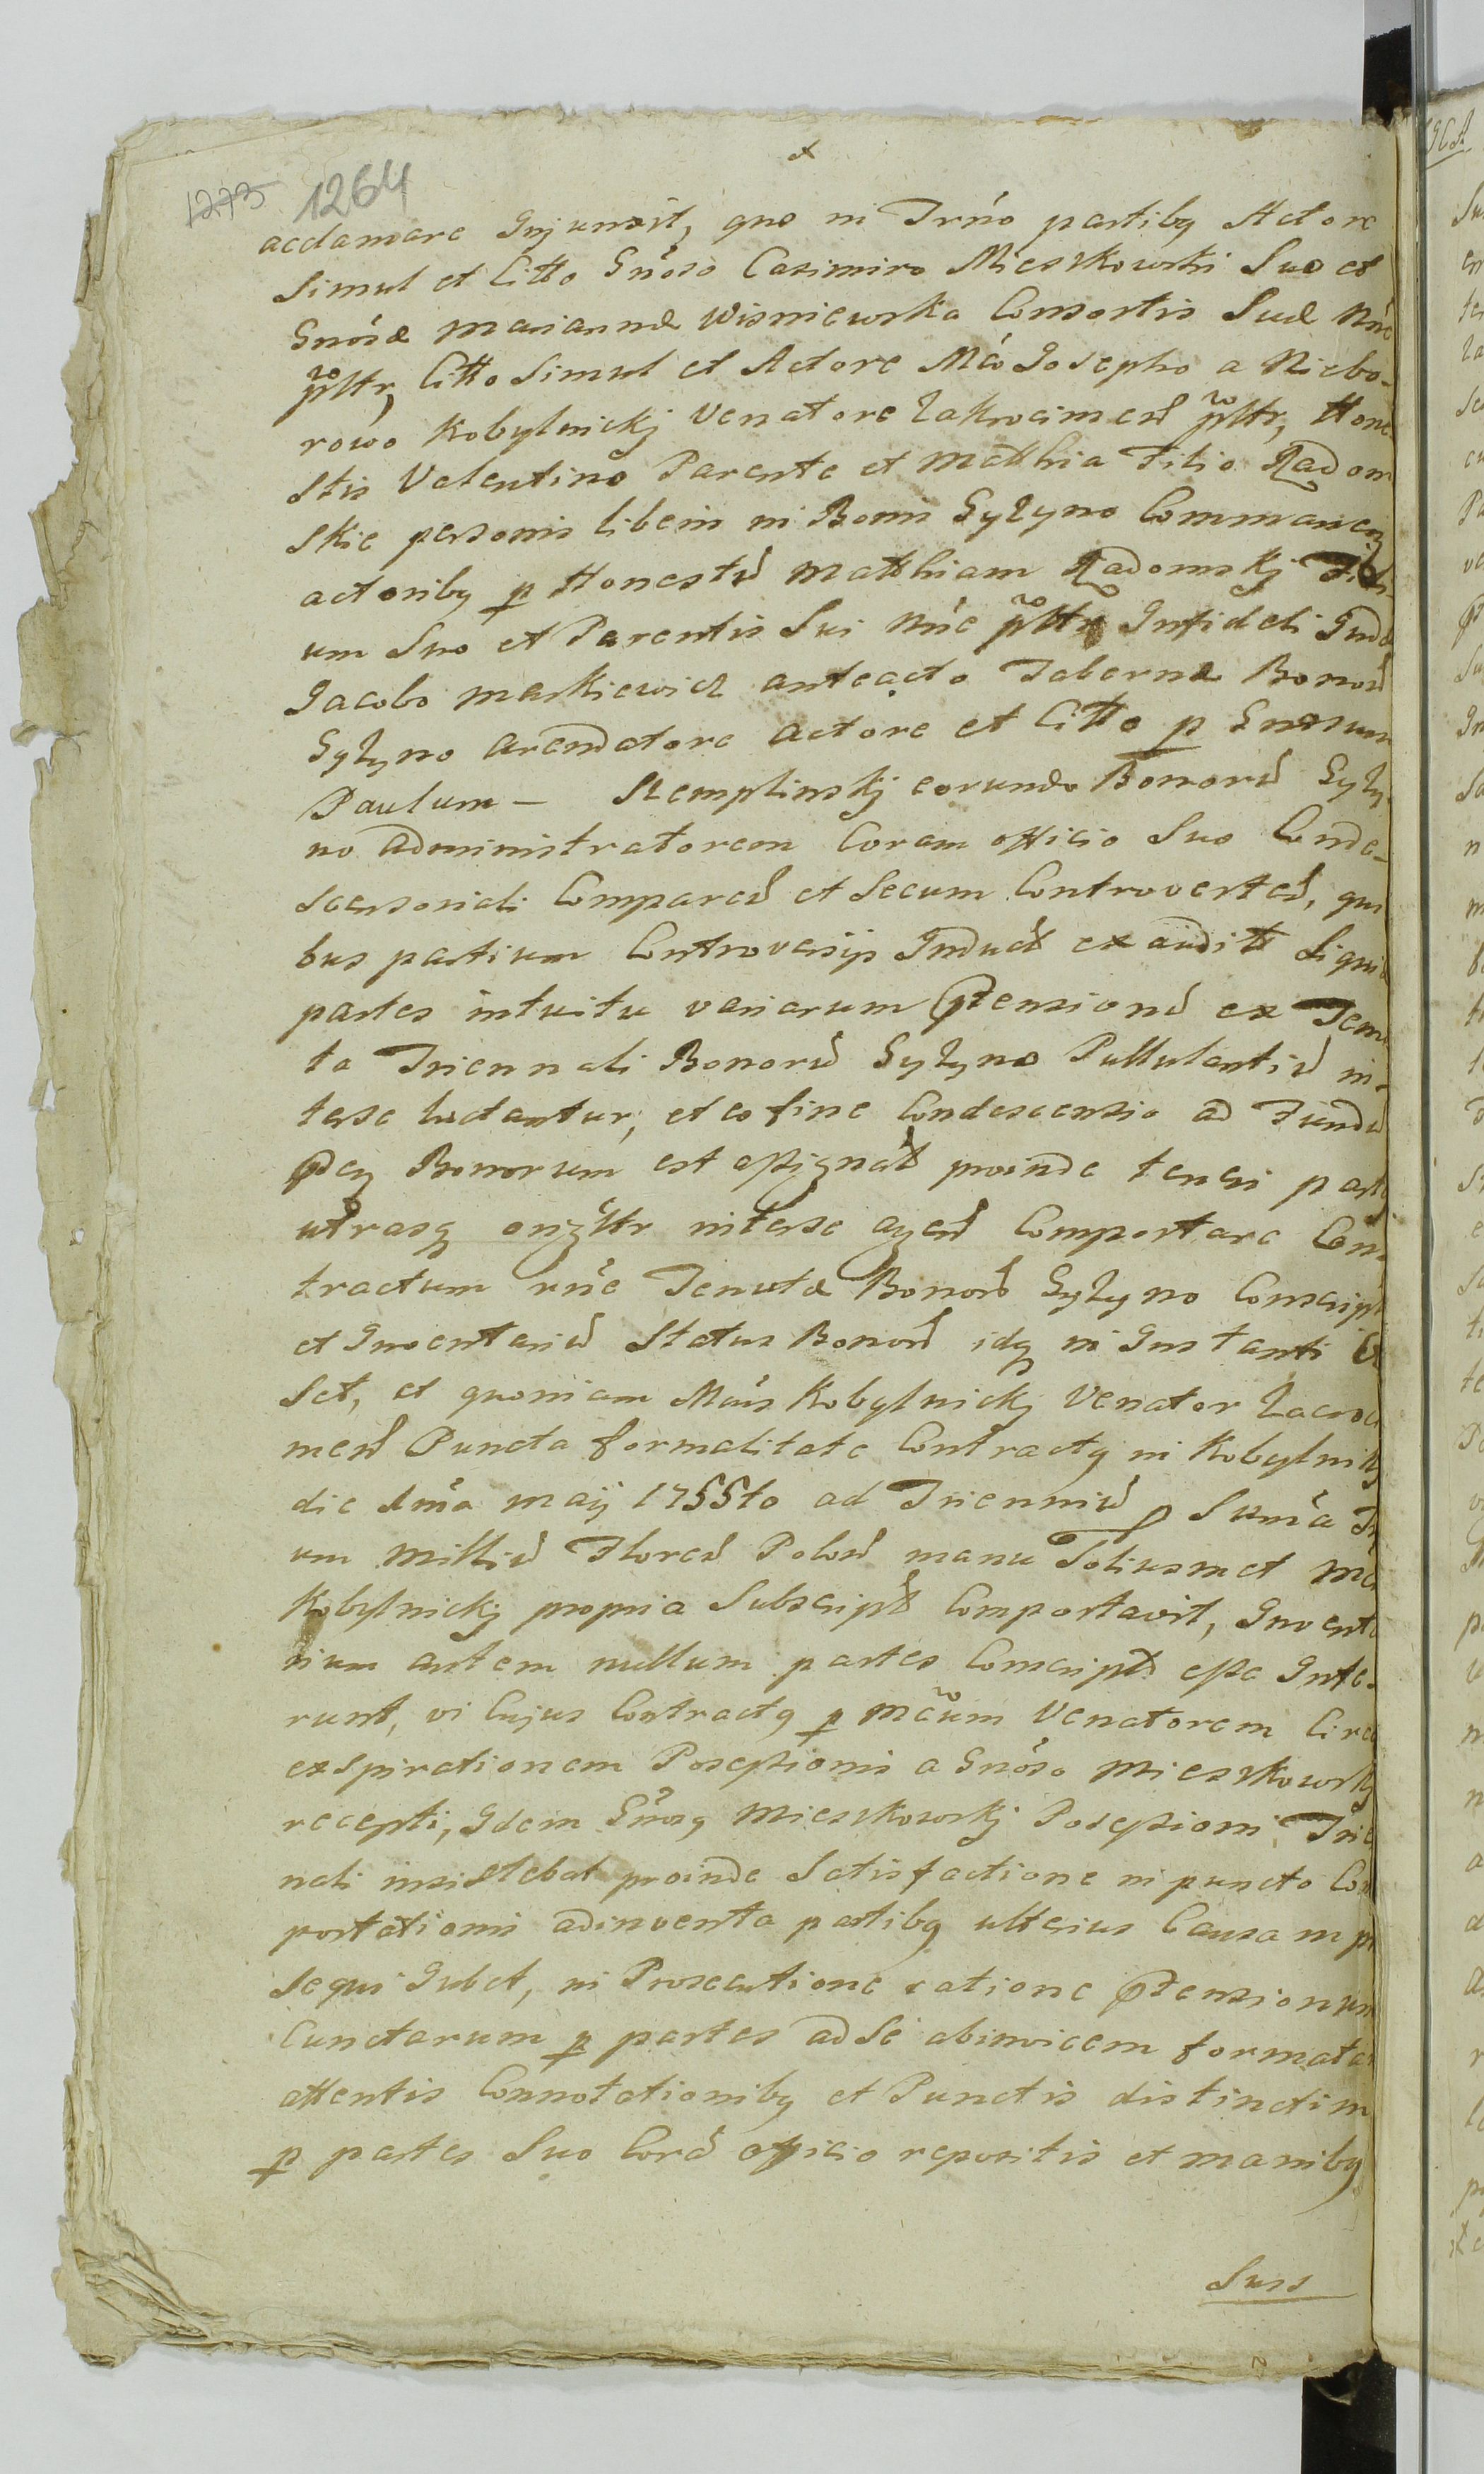 x
1273 1264
acclamare Injunxit, quo in Trño partibq Actore
Simul et Citto Gñoso Casimiro Mieszkowski Suo et
Gnosæ Mariannæ Wisniewska Consortis Suæ nñe
pltr, Citto Simul et Actore Mco Josepho a Niebo-
rowo Kobylnickj Venatore Zakrocimen pltr, Hone
stis Valentino Parente et Matthia Filio Radom
skie personis liberis in Bonis Gyzyno Commanen
actoribq p Honestu Matthiam Radomskj Fili-
um Suo et Parentis Sui nñe pltr Infideli Juda
Jacobo Markiewicz anteacto Tabernæ Bonoru
Gyzyno arendatore actore et Citto p Gnosum
Paulum – Stemplinskj eorunde Bonoru Gyzy
no administratorem Coram officio Suo Conde-
scensoriali Comparen et Secum Controverten, qui
bus partium Controversijs Induct exaudit Siqui
partes intuitu variarum ptensionu ex Tenu
ta Triennali Bonoru Gyzyno Pullulantiu in-
terse luctantur, et eo fine Condescensio ad Fundu
pdcq Bonorum est assignat proinde teneri partes
utrasq onzltr interse agen Comportare Con
tractum rñe Tenutæ Bonoru Gyzyno Conscript
et Inventariu Status Bonoru idq in Instanti
Set, et quoniam Mcus Kobylnickj Venator Zacroci
men Puncta formalitate Contractq in Kobylnikj
die 1mã maij 1755to ad Trienniu p Sumã Tri
um Milliu Floren Polon manu Solius met Mci
Kobylnickj propria Subscript Comportavit, Inventa
rium autem nullum partes Conscript esse Inte-
runt, vi Cujus Contractq p Mcum Venatorem Circa
exspirationem Possessionis a Gnoso Mieszkowskj
recepti, Idem Gnosq Mieszkowskj Possessioni Trie
nali insistebat proinde Satisfactione in puncto Com
portationis adinventa partibq ulterius Causam p
sequi Jubet, in Prosecutione ratione ptensionum
Cunctarum p partes ad Se abinvicem formatar
attentis Connotationibq et Punctis distinctim
p partes Suo Corã officio repositis et manibq
Suss